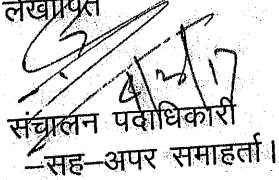 लेखापित
संचालन पदाधिकारी
–सह–अपर समाहर्ता।